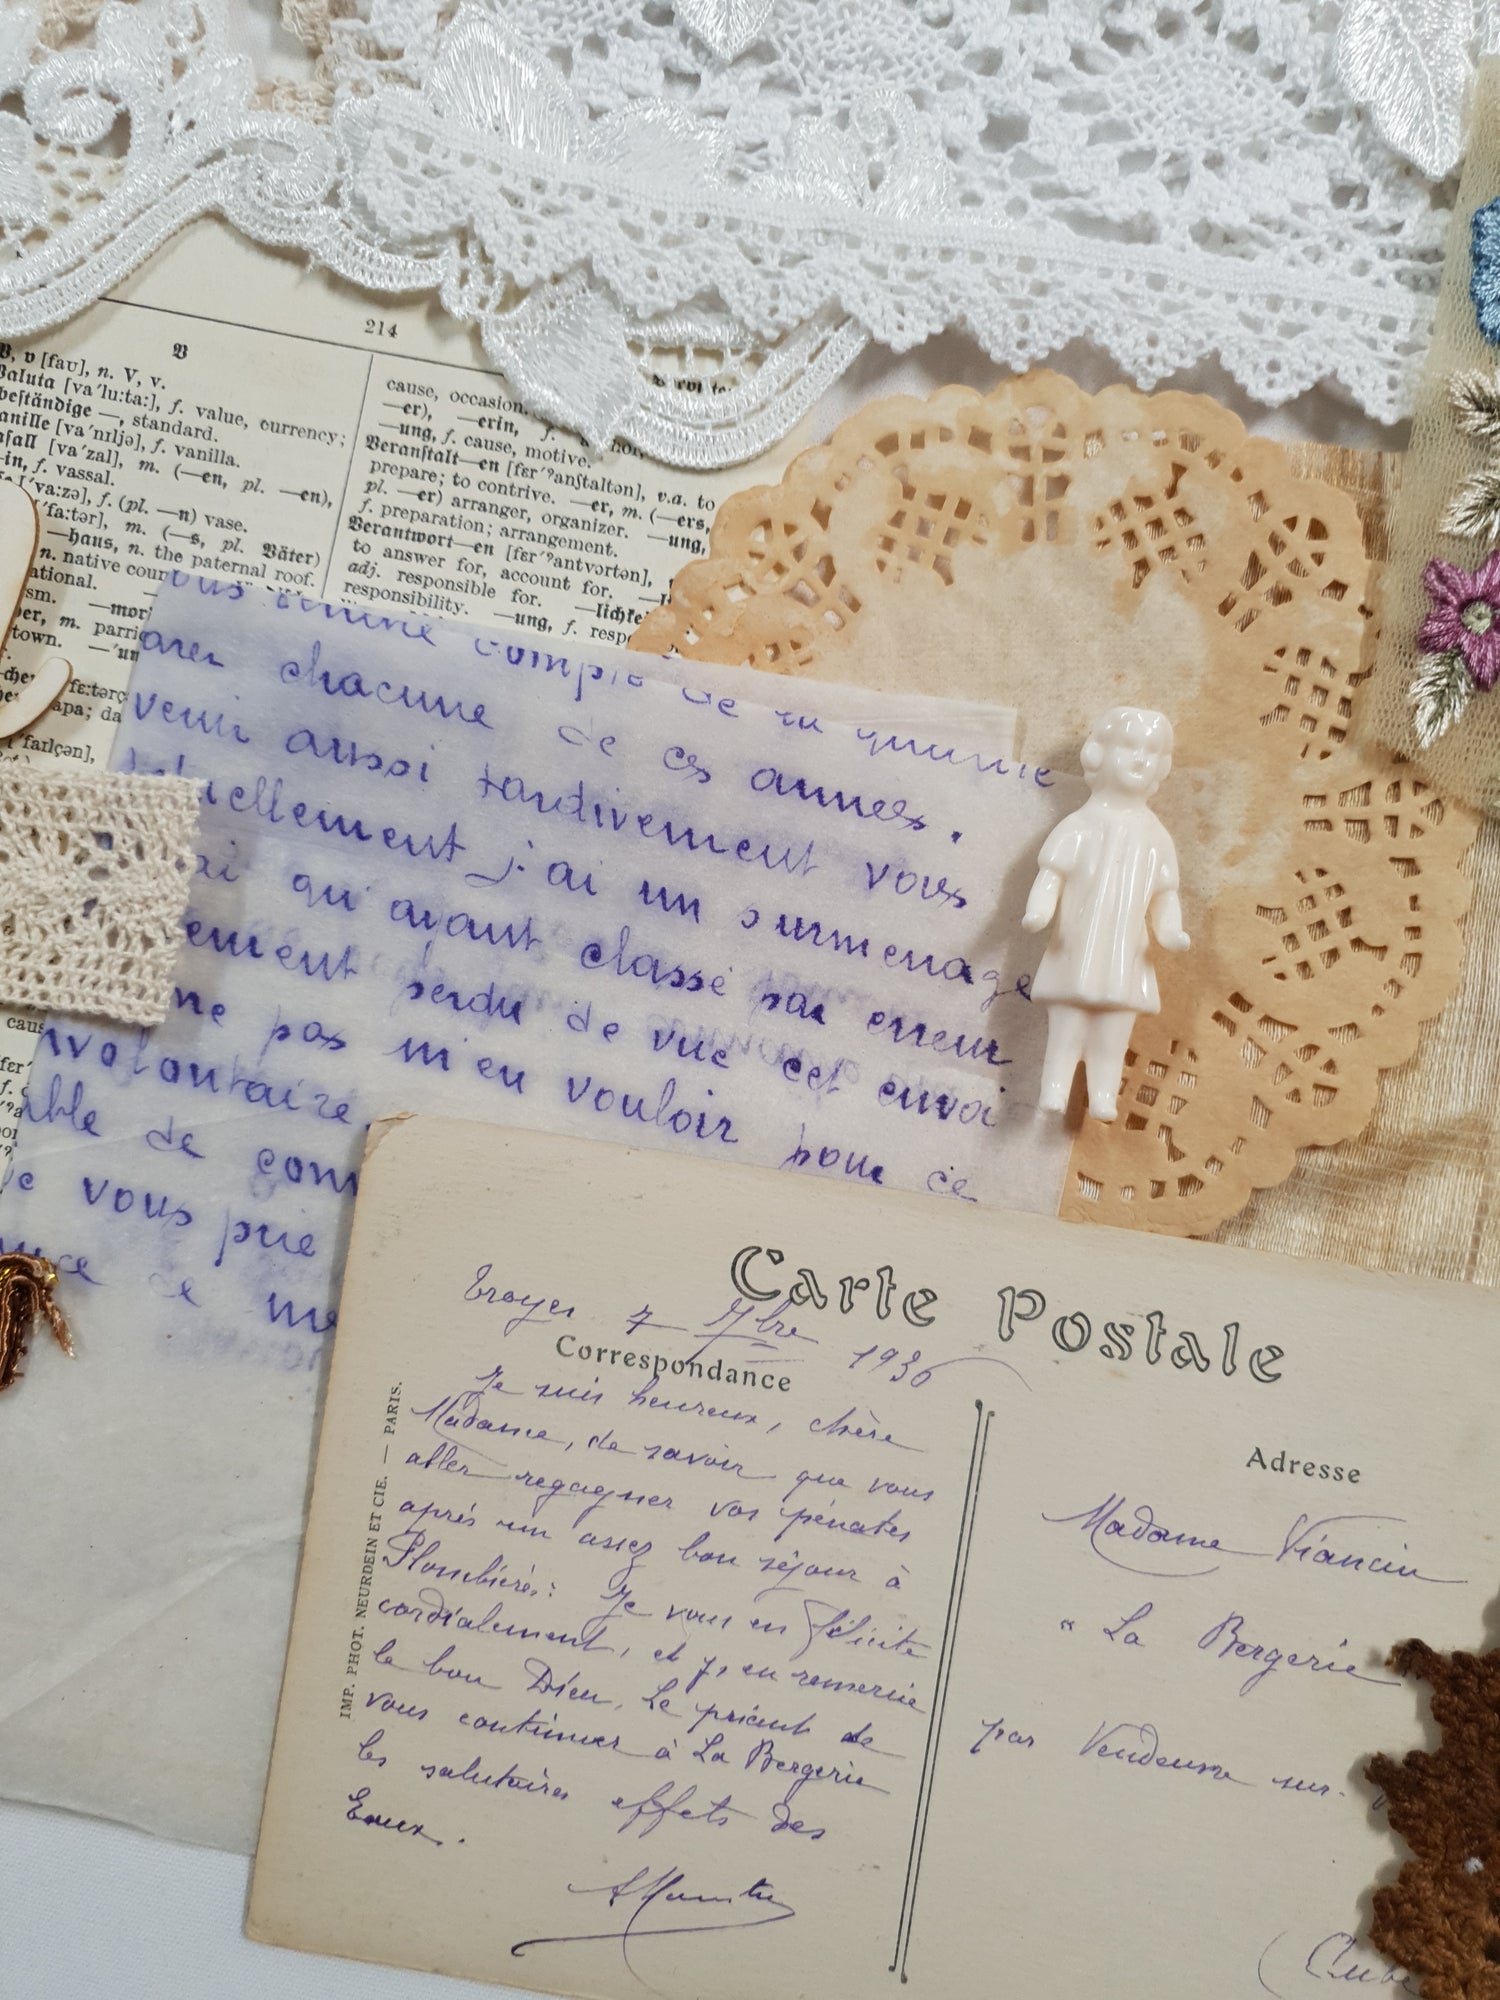 214
V
V, v [fau], n. V, v.
Valuta [va'lu:ta:], f. value, currency;
beständige —, standard.
anille [va'nɪljə], f. vanilla.
afall [va'zal], m. (—en, pl. —en),
—in, f. vassal.
['va:zə], f. (pl. —n) vase.
'fa:tər], m. (—s, pl. Väter)
—haus, n. the paternal roof.
n. native coun
ational.
sm. —mor
er, m. parri
town. —'un
fɛ:tərç
apa; da
['faɪlçən],
cause, occasion.
—er), —erin, f.
—ung, f. cause, motive.
Veranstalt—en [fɛr'ʔanʃtaltən], v.a. to
prepare; to contrive. —er, m. (—ers,
pl. —er) arranger, organizer. —ung,
f. preparation; arrangement.
Verantwort—en [fɛr'ʔantvɔrtən],
to answer for, account for.
adj. responsible for. —lichke
responsibility. —ung, f. respo
caus
compte de la
arer chacune de ces années.
venir aussi tardivement vous
ellement j'ai un surmenage
ai qui ayant classé par erreur
ement perdu de vue cet envoi
ne pas m'en vouloir pour ce
nvolontaire.
able de com
e vous prie
nce ce me
Carte Postale
Troyes 7 7bre 1936
Correspondance
Je suis heureux, chère
Madame, de savoir que vous
aller regagner vos pénates
après un assez bon séjour à
Plombières: Je vous en félicite
cordialement, et j'en remercie
le bon Dieu, Le priant de
vous continuer à La Bergerie
les salutaires effets des
Eaux.
IMP. PHOT. NEURDEIN ET CIE. — PARIS.
Adresse
Madame Viancin
" La Bergerie
par Vendeuvre sur-
(Aube